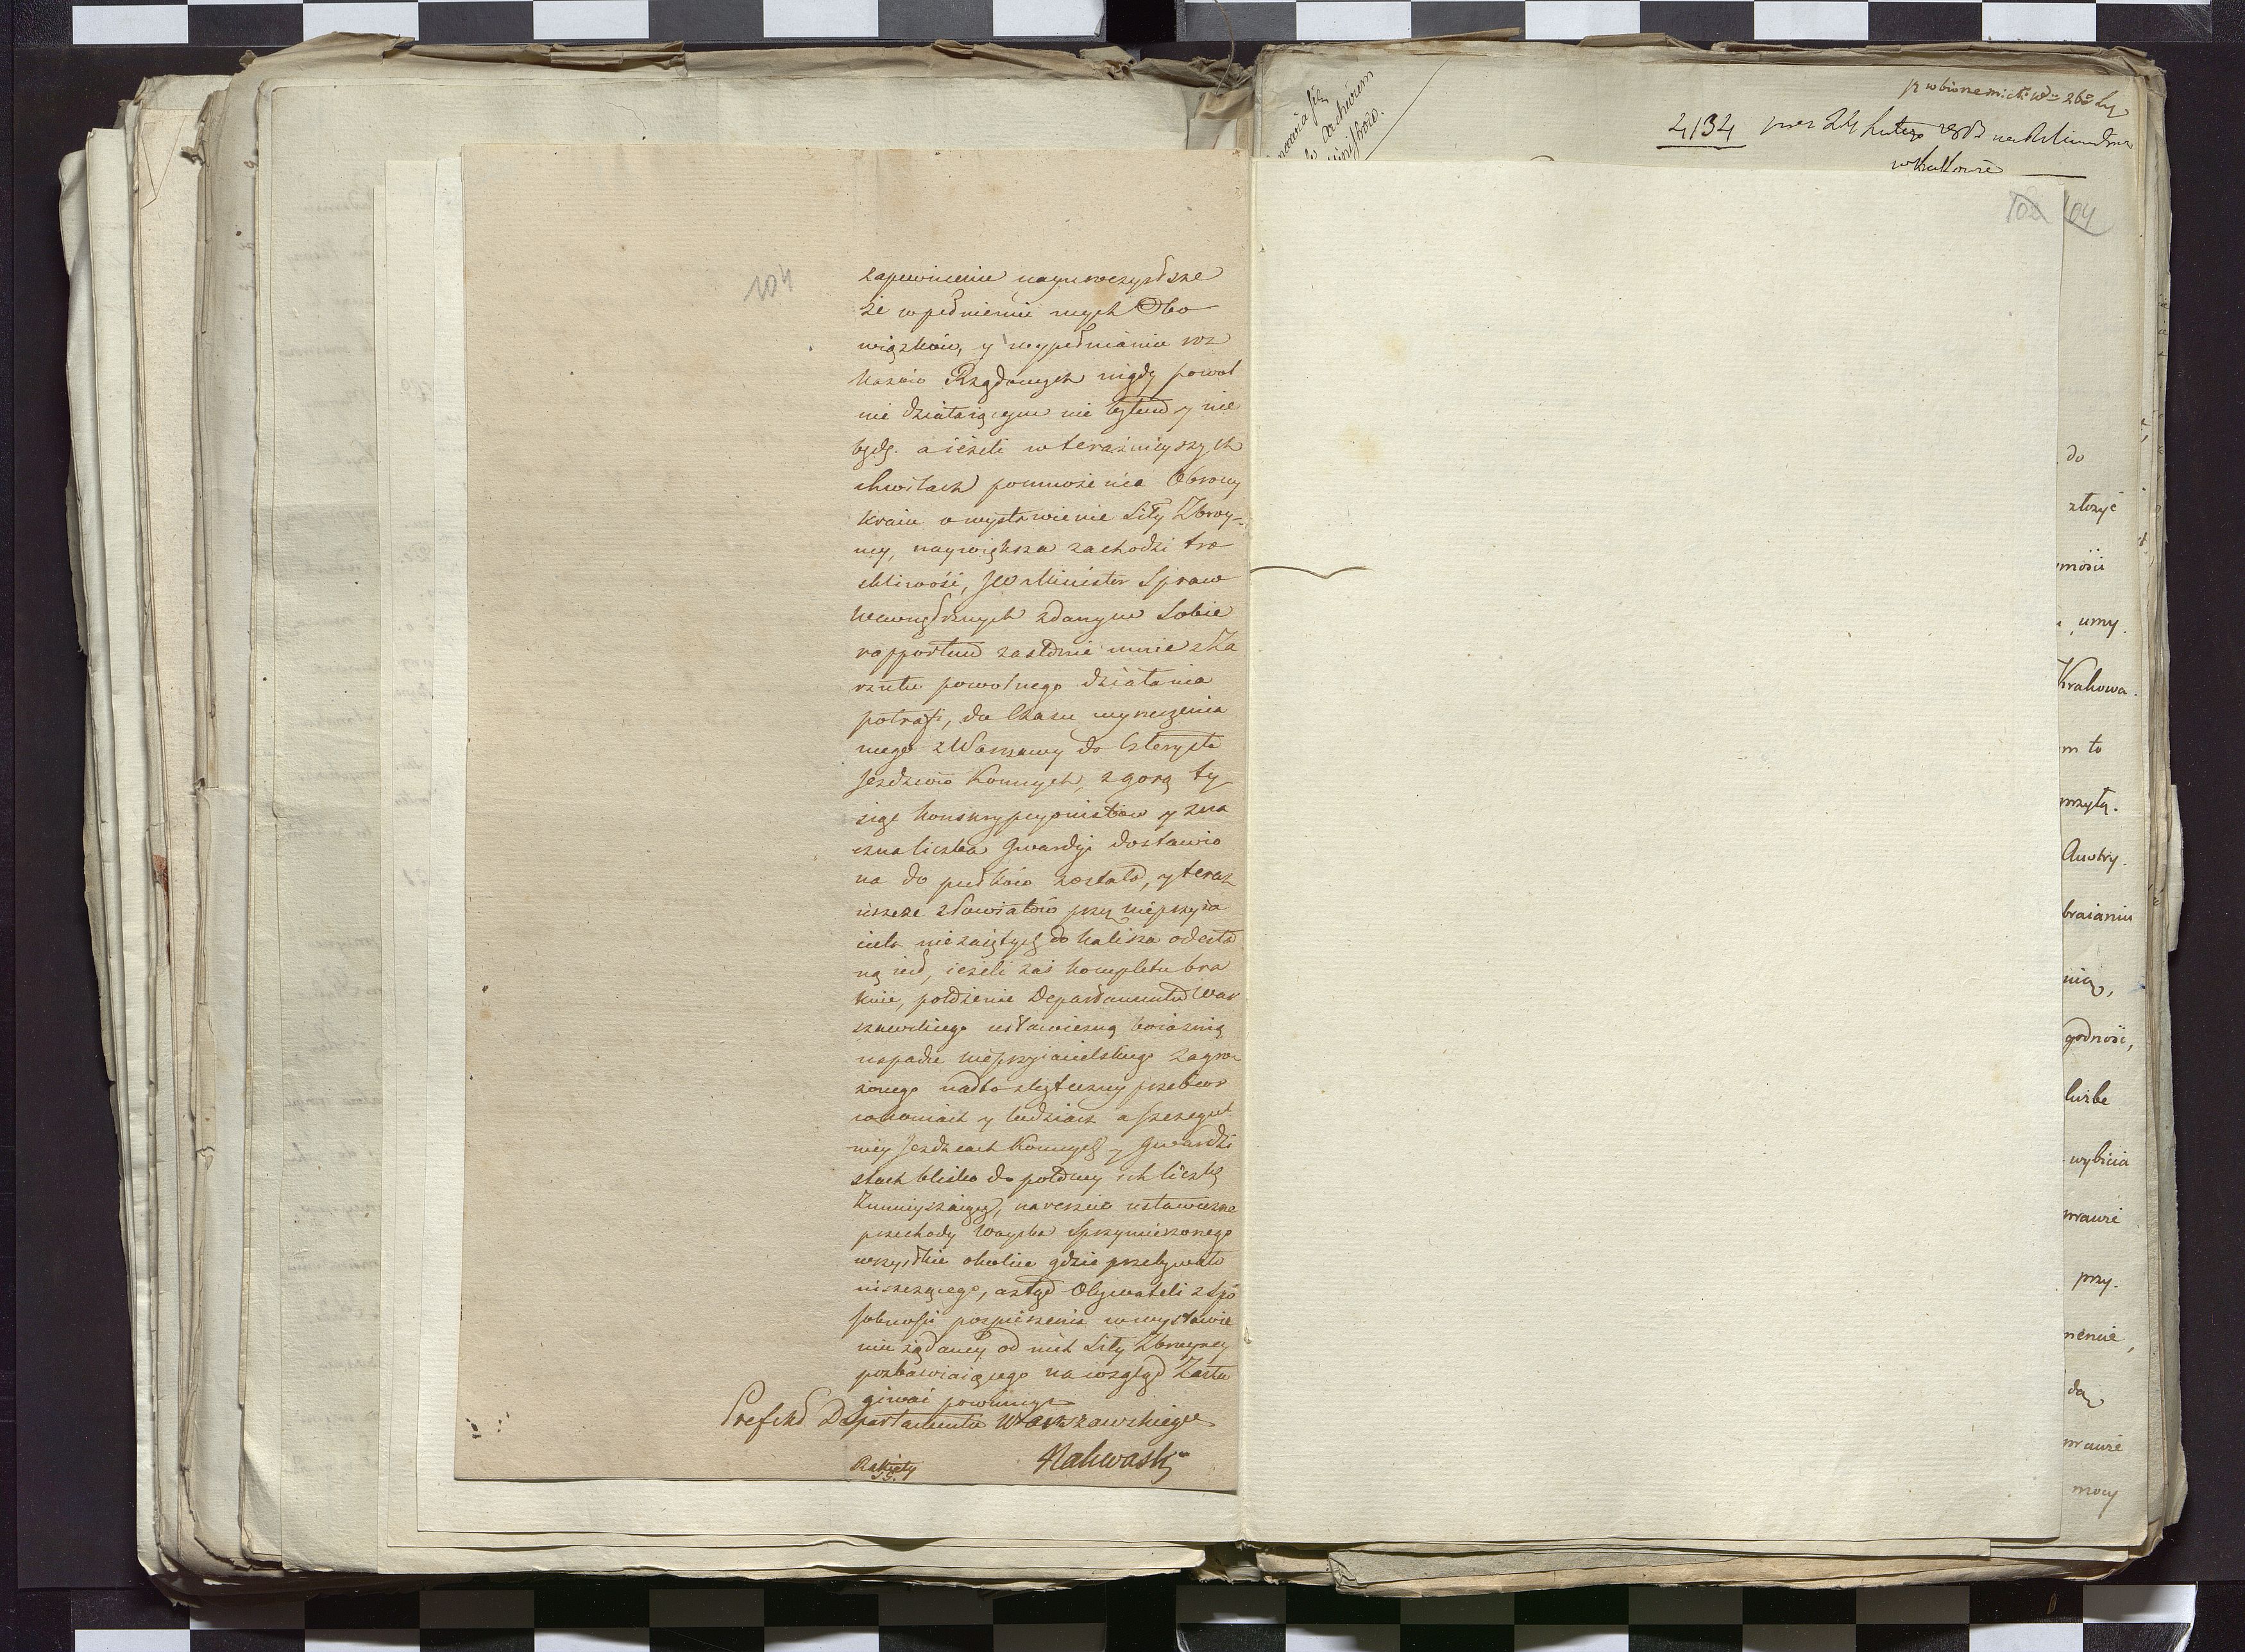 104
zapewnienie nayuroczystsze
że wpełnieniu mych Obo
wiązków, y wypełnianiu roz
kazów Rządowych nigdy powol
nie działaiącym nie byłem y nie
będę. a ieżeli wteraźnieyszych
chwilach pomnożenia Obrony
Kraiu o wystawienie Siły Zbroy-
ney, naywiększa zachodzi tro
skliwość, JW Minister Spraw
Wewnętrznych zdanym Sobie
rapportem zasłonić mnie z Za
rzutu powolnego działania
potrafi, do Czasu wyruszenia
mego z Warszawy do Czterysta
Jezdzców Konnych, zgorą ty-
siąc konskrypcyonistów y zna
czna liczba Gwardyi dostawio
na do pułków została, y teraz
ieszcze z Powiatów przez nieprzyia
ciela niezaiętych do Kalisza odesła
ną iest, ieżeli zaś kompletu bra
knie, położenie Departamentu War
szawskiego ustawiczną boiaźnią
napadu nieprzyiacielskiego zagro
żonego nadto
w koniach y ludziach a szczegul
niey Jezdzcach Konnych y Gwardzi
stach blisko do połowy ich liczbę
Zmnieyszaiący, nareszcie ustawiczne
przechody Woyska Sprzymierzonego
wszystkie okolice gdzie przebywało
niszczącego, a ztąd Obywateli z spo
sobności pospieszenia w wystawie
niu żądaney od nich Siły Zbroyney
pozbawiaiącego na wzgląd Zasłu
giwać powinny
Prefekt Departamentu Warszawskiego
Nakwaski
Rakiety
26º Lut
4134 prez 24 Lutego
w Krakowie
102 104
do
złożyć
mości
umy.
Krakowa.
m to
przyłą.
Austry.
braianiu
nią,
godność,
liczbe
wybicia
mrawie
przy.
nenie,
dą
mrawie
mocy